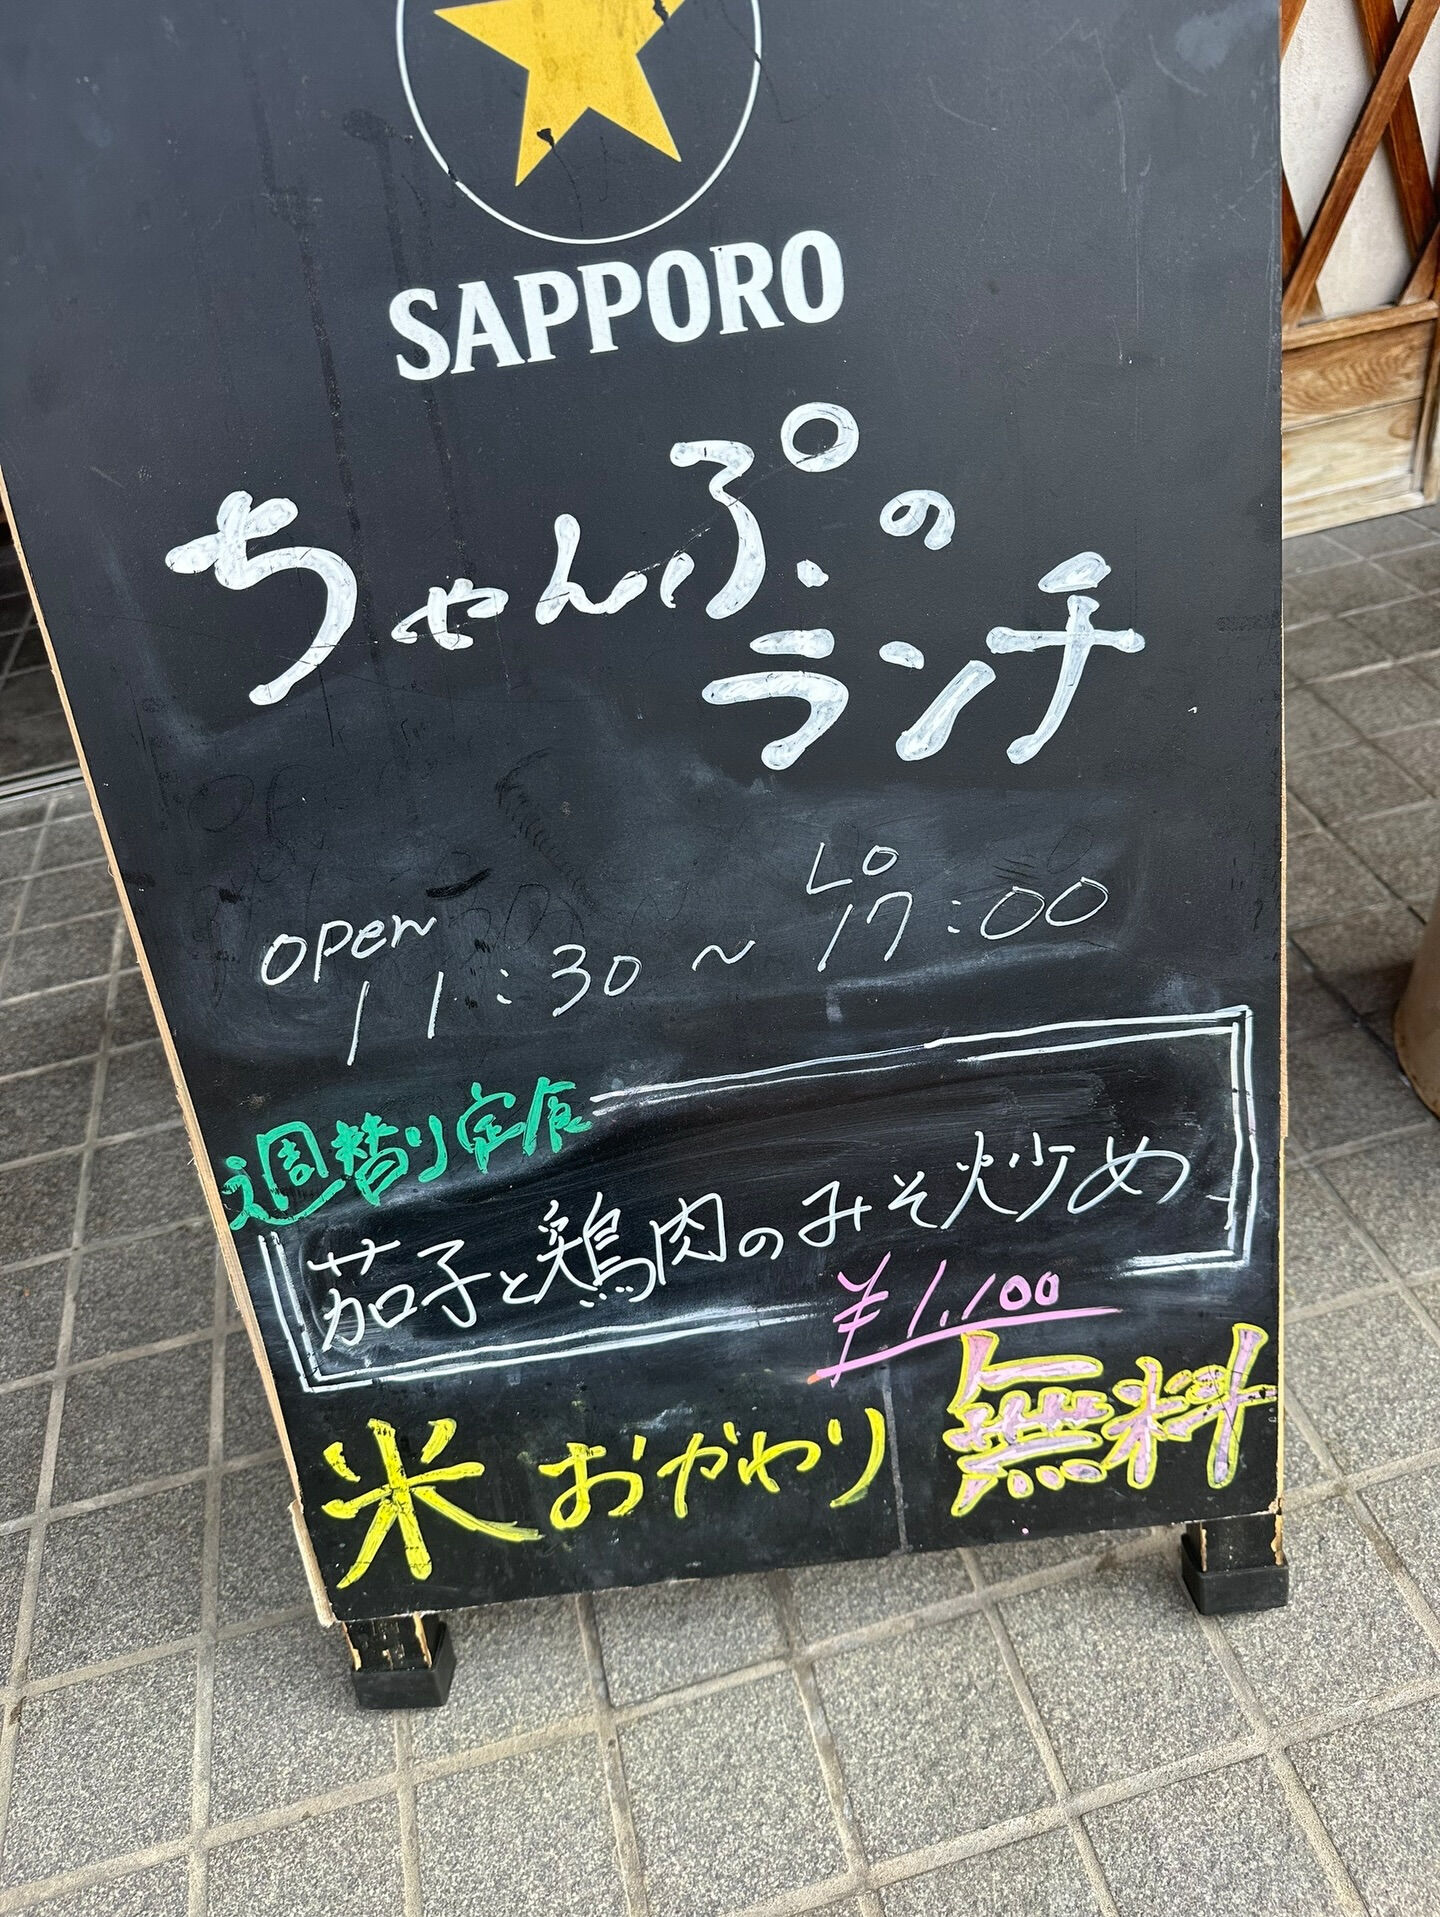 SAPPORO
ちゃんぷの
ランチ
OPEN LO
11:30～17:00
週替り定食
茄子と鶏肉のみそ炒め
¥1.100
米おかわり 無料